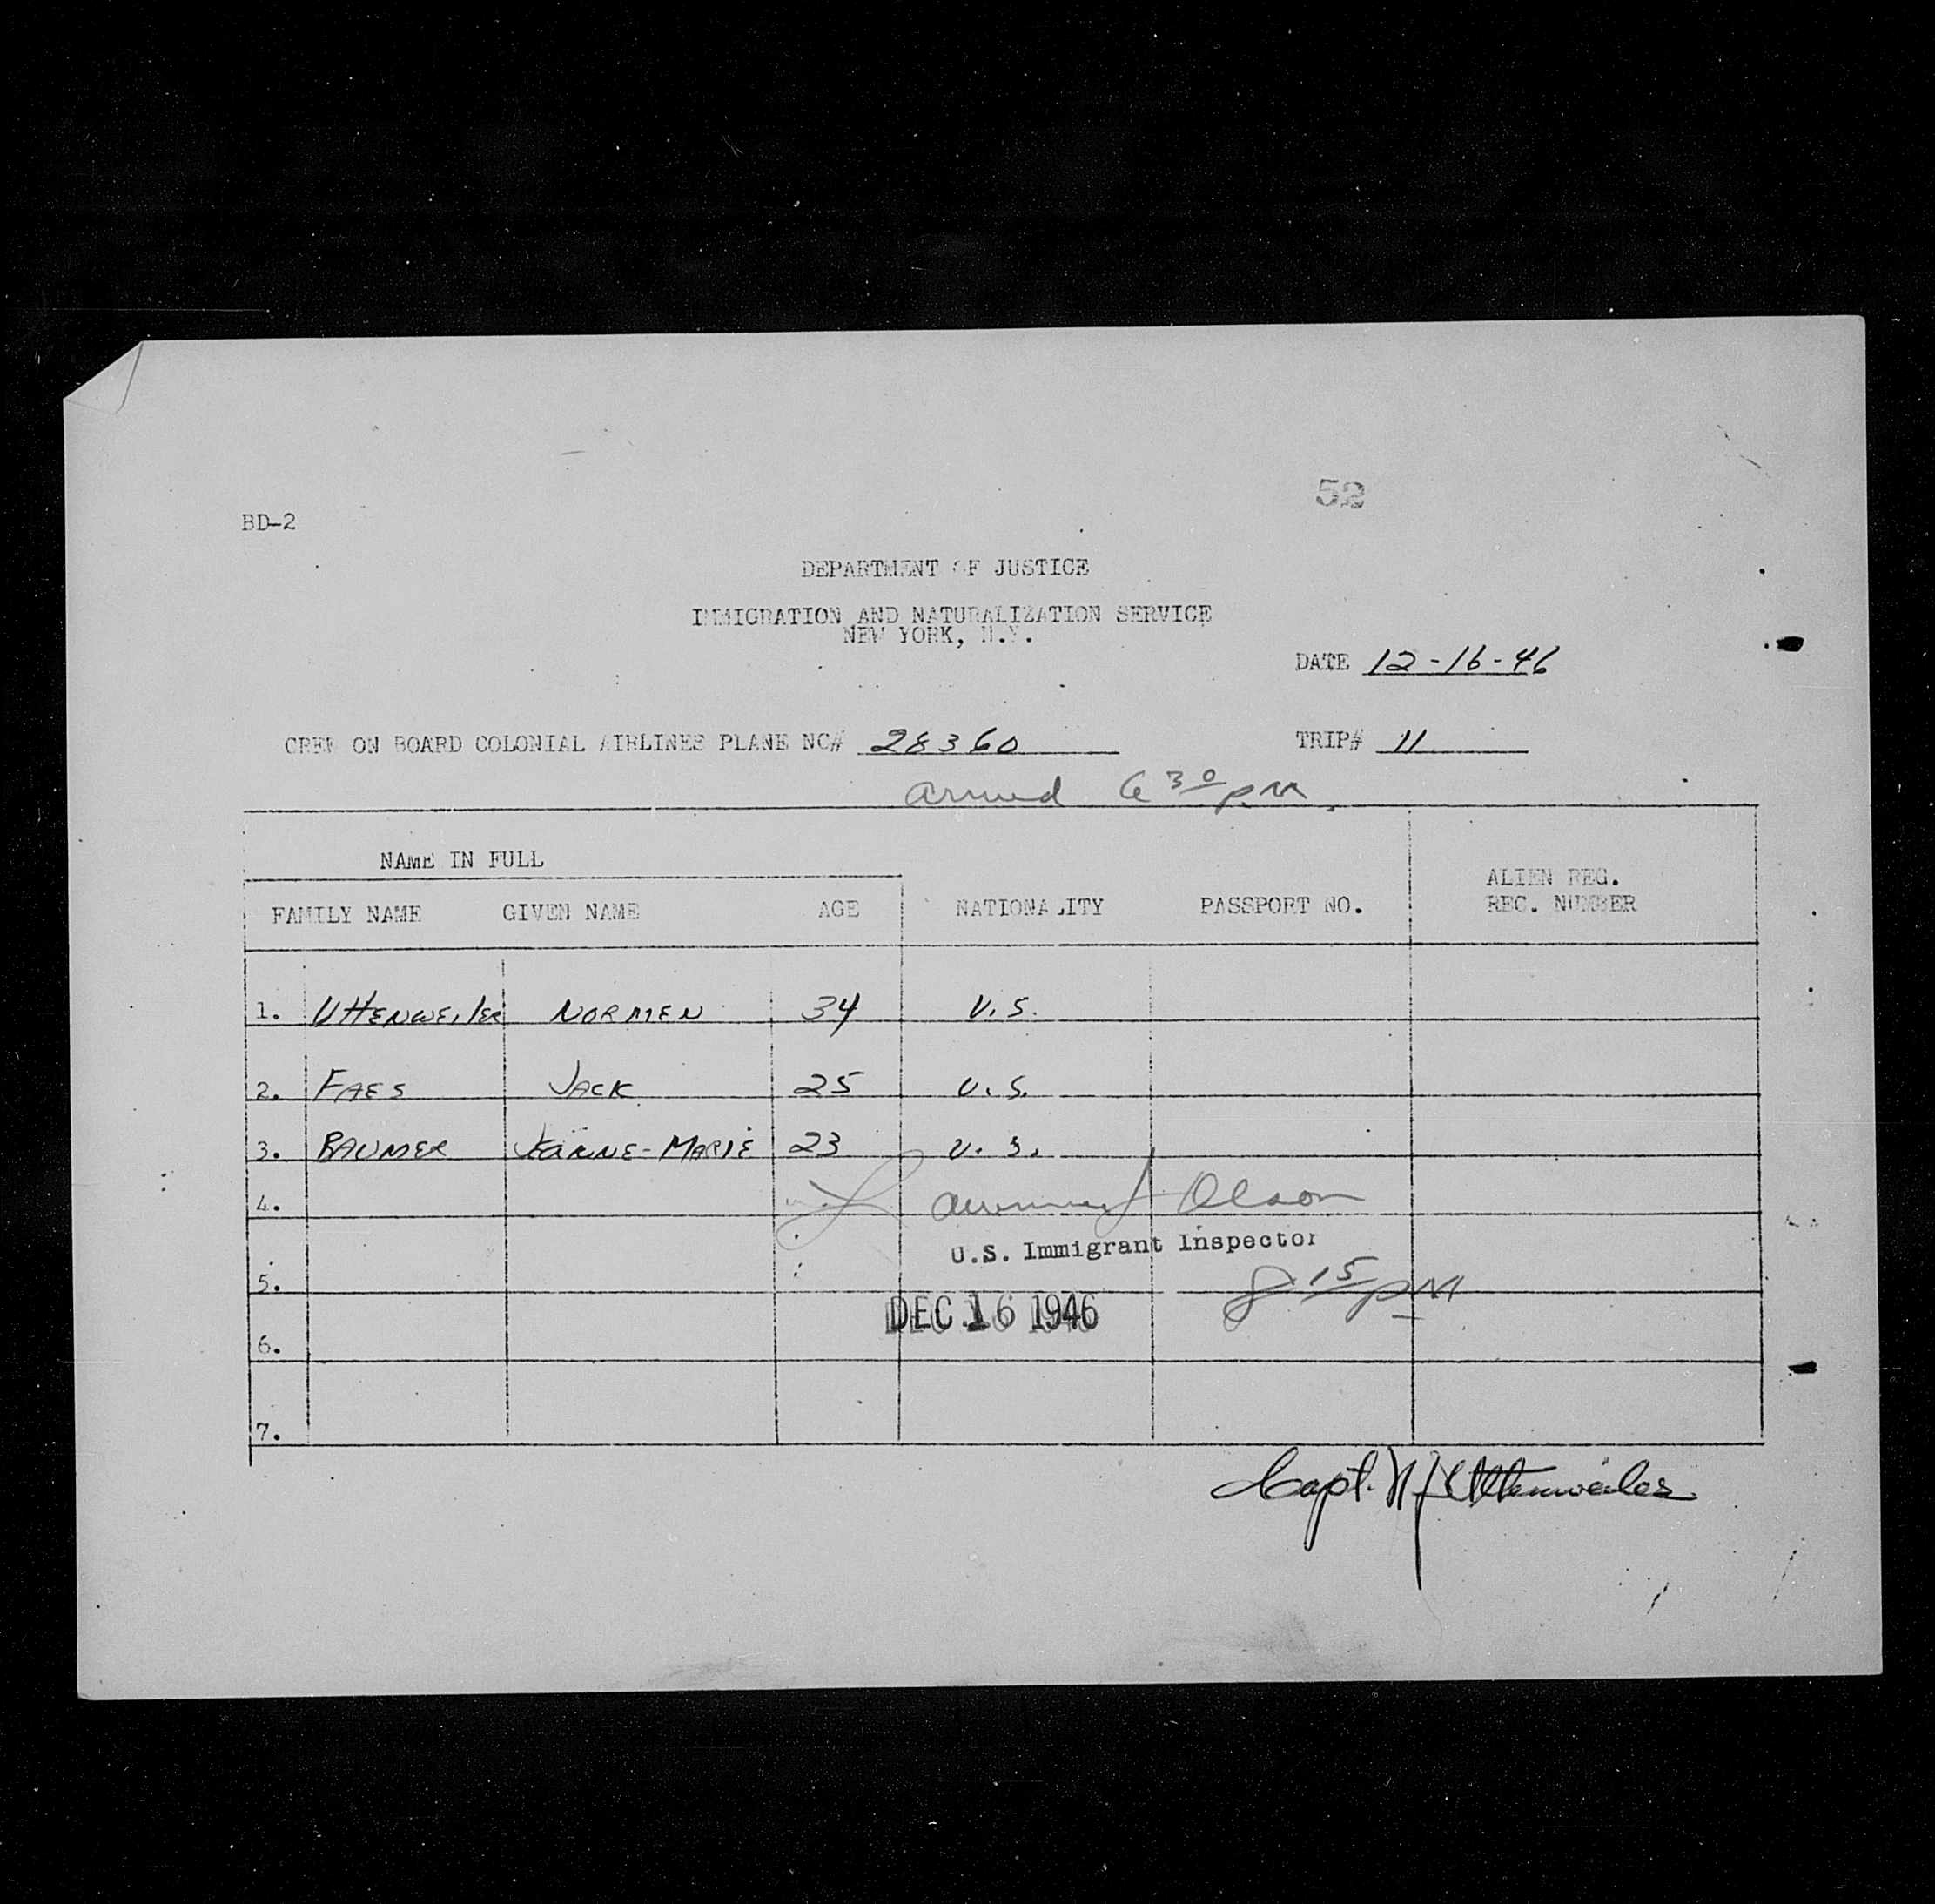 52
BD-2
DEPARTMENT OF JUSTICE
IMMIGRATION AND NATURALIZATION SERVICE
NEW YORK, N.Y.
DATE 12-16-46
CREW ON BOARD COLONIAL AIRLINES PLANE NC# 28360 TRIP# 11
arrived 6 30 PM
NAME IN FULL
FAMILY NAME GIVEN NAME AGE NATIONALITY PASSPORT NO. ALIEN REG. REC. NUMBER
1. UTTENWEILER NORMEN 34 U.S.
2. FAES JACK 25 U.S.
3. BAUMER JEANNE-MARIE 23 U.S.
4. Olson
U.S. Immigrant Inspector
5. 8 15 PM
DEC 16 1946
6.
7.
Capt. N J Uttenweiler